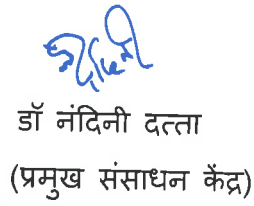 डॉ नंदिनी दत्ता
(प्रमुख संसाधन केंद्र)